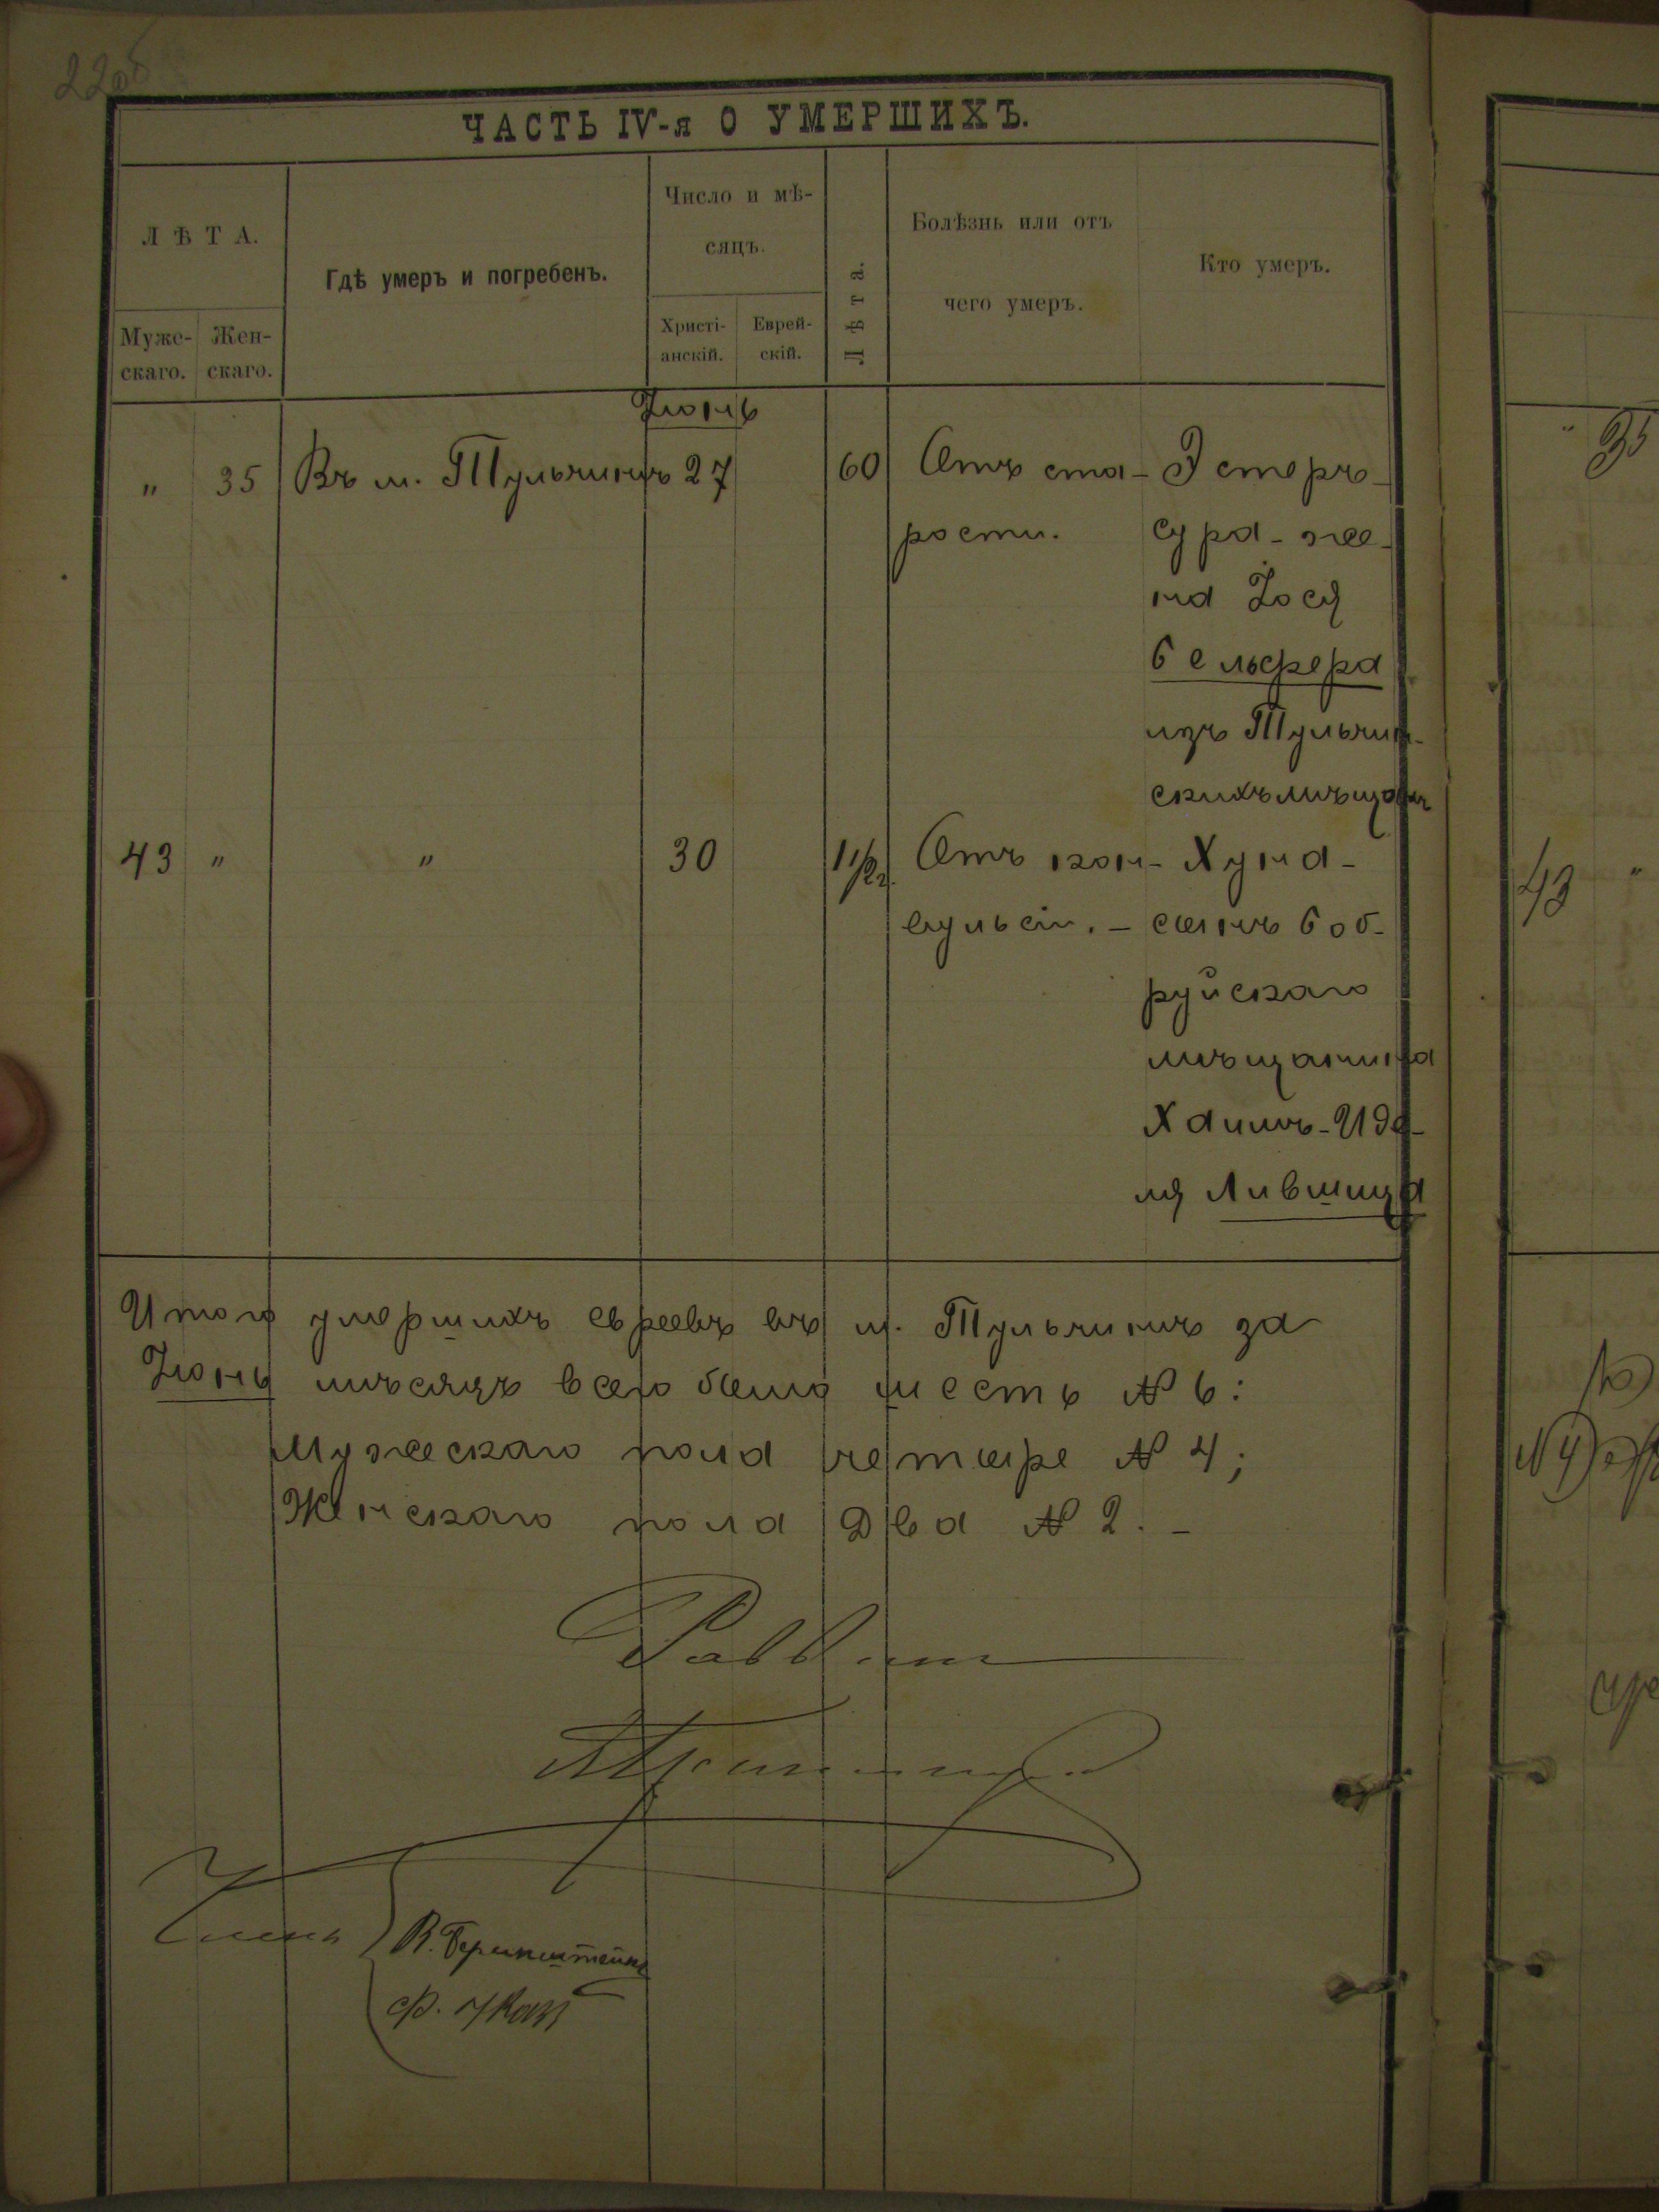 22об
ЧАСТЬ IV-я О УМЕРШИХЪ.
ЛѢТА.
Муже-
скаго.
Жен-
скаго.
Гдѣ умеръ и погребенъ.
Число и мѣ-
сяцъ.
Христі-
анскій.
Еврей-
скій.
Лѣта.
Болѣзнь или отъ
чего умеръ.
Кто умеръ.
Іюнь
" 35 Въ м. Тульчинѣ 27 60 Отъ ста- Эстеръ-
рости. Сура - же-
на Іося
Бельфера
изъ Тульчин-
скихъ мѣщанъ
43 " " 30 1 1/2 г. Отъ кон- Хуна -
вульсіи. - сынъ Боб-
руйскаго
мѣщанина
Хаимъ-Иде-
ля Лившица
Итого умершихъ евреевъ въ м. Тульчинѣ за
Іюнь мѣсяцъ всего было шесть № 6:
Мужескаго пола четыре № 4;
Женскаго пола два № 2. -
Раввин
Члены
В. Бернштейнъ
Ф.
35
43 "
№ 4)